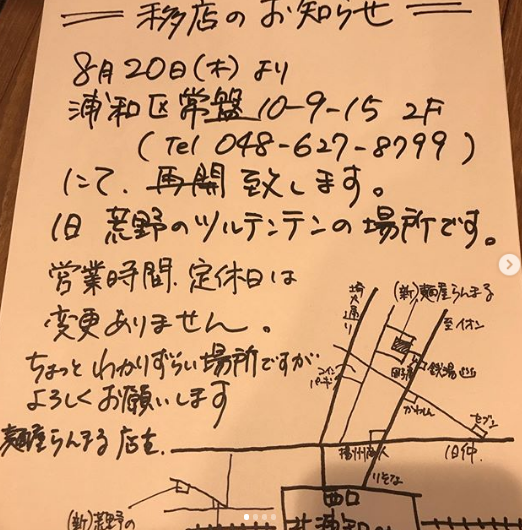 移店のお知らせ
8月20日(木)より
浦和区常盤10-9-15 2F
(Tel 048-627-8799)
にて、再開致します。
旧 荒野のツルテンテンの場所です。
営業時間、定休日は
変更ありません。
ちょっとわかりずらい場所ですが
よろしくお願いします
麺屋らんまる 店主.
埼大通り
(新)麺屋らんまる
至イオン
コイン
パーキング
セブン
旧仲.
りそな
西口
北浦和
(新)荒野の